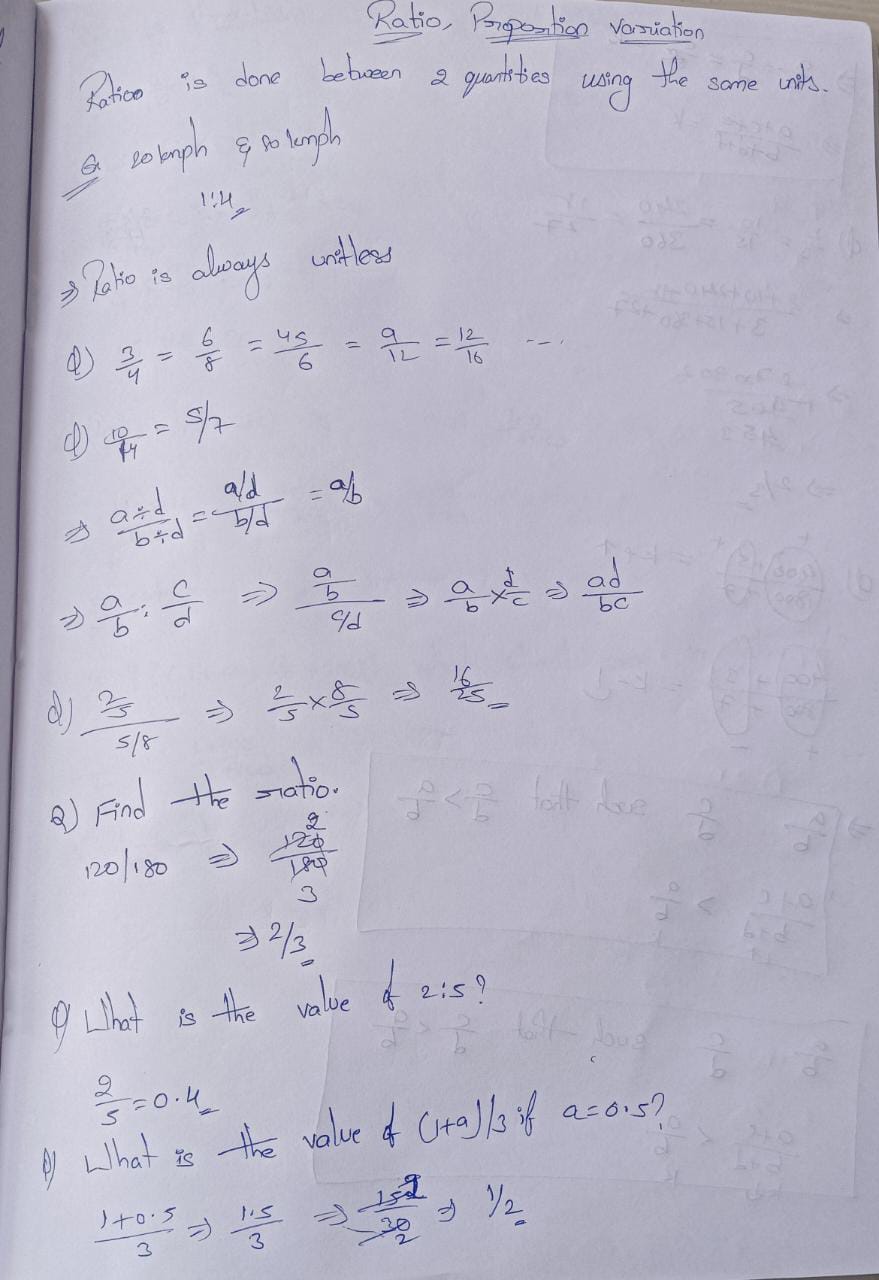 Ratio, Proportion Variation
Ratio is done between 2 quantities using the same units.
Q 20 kmph & 80 kmph
1:4
⇒ Ratio is always unitless
Q) 3/4 = 6/8 = 4.5/6 = 9/12 = 12/16 ----
Q) 10/14 = 5/7
⇒ a÷d/b÷d = a/d/b/d = a/b
⇒ a/b : c/d ⇒ a/b/c/d ⇒ a/b × d/c ⇒ ad/bc
Q) 2/5/5/8 ⇒ 2/5 × 8/5 ⇒ 16/25
Q) Find the ratio.
120/180 ⇒ 120/180 2 3
⇒ 2/3
Q) What is the value of 2:5?
2/5 = 0.4
Q) What is the value of (1+a)/3 if a=0.5?
1+0.5/3 ⇒ 1.5/3 ⇒ 15/30 2 ⇒ 1/2